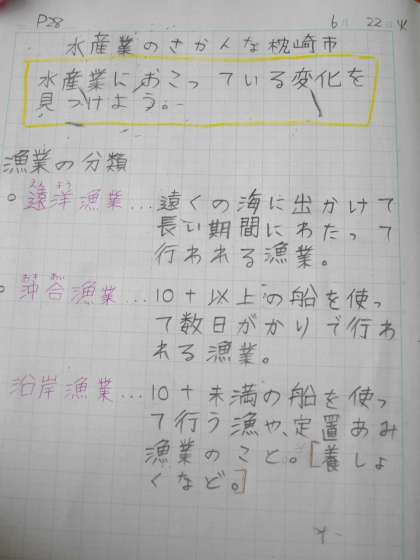 P28
6月22日
水産業のさかんな枕崎市
水産業におこっている変化を
見つけよう。
漁業の分類
えんよう
○遠洋漁業…遠くの海に出かけて
長い期間にわたって
行われる漁業。
おきあい
○沖合漁業…10t以上の船を使っ
て数日がかりで行わ
れる漁業。
沿岸漁業…10t未満の船を使っ
て行う漁や、定置あみ
漁業のこと。[養しょ
くなど。]